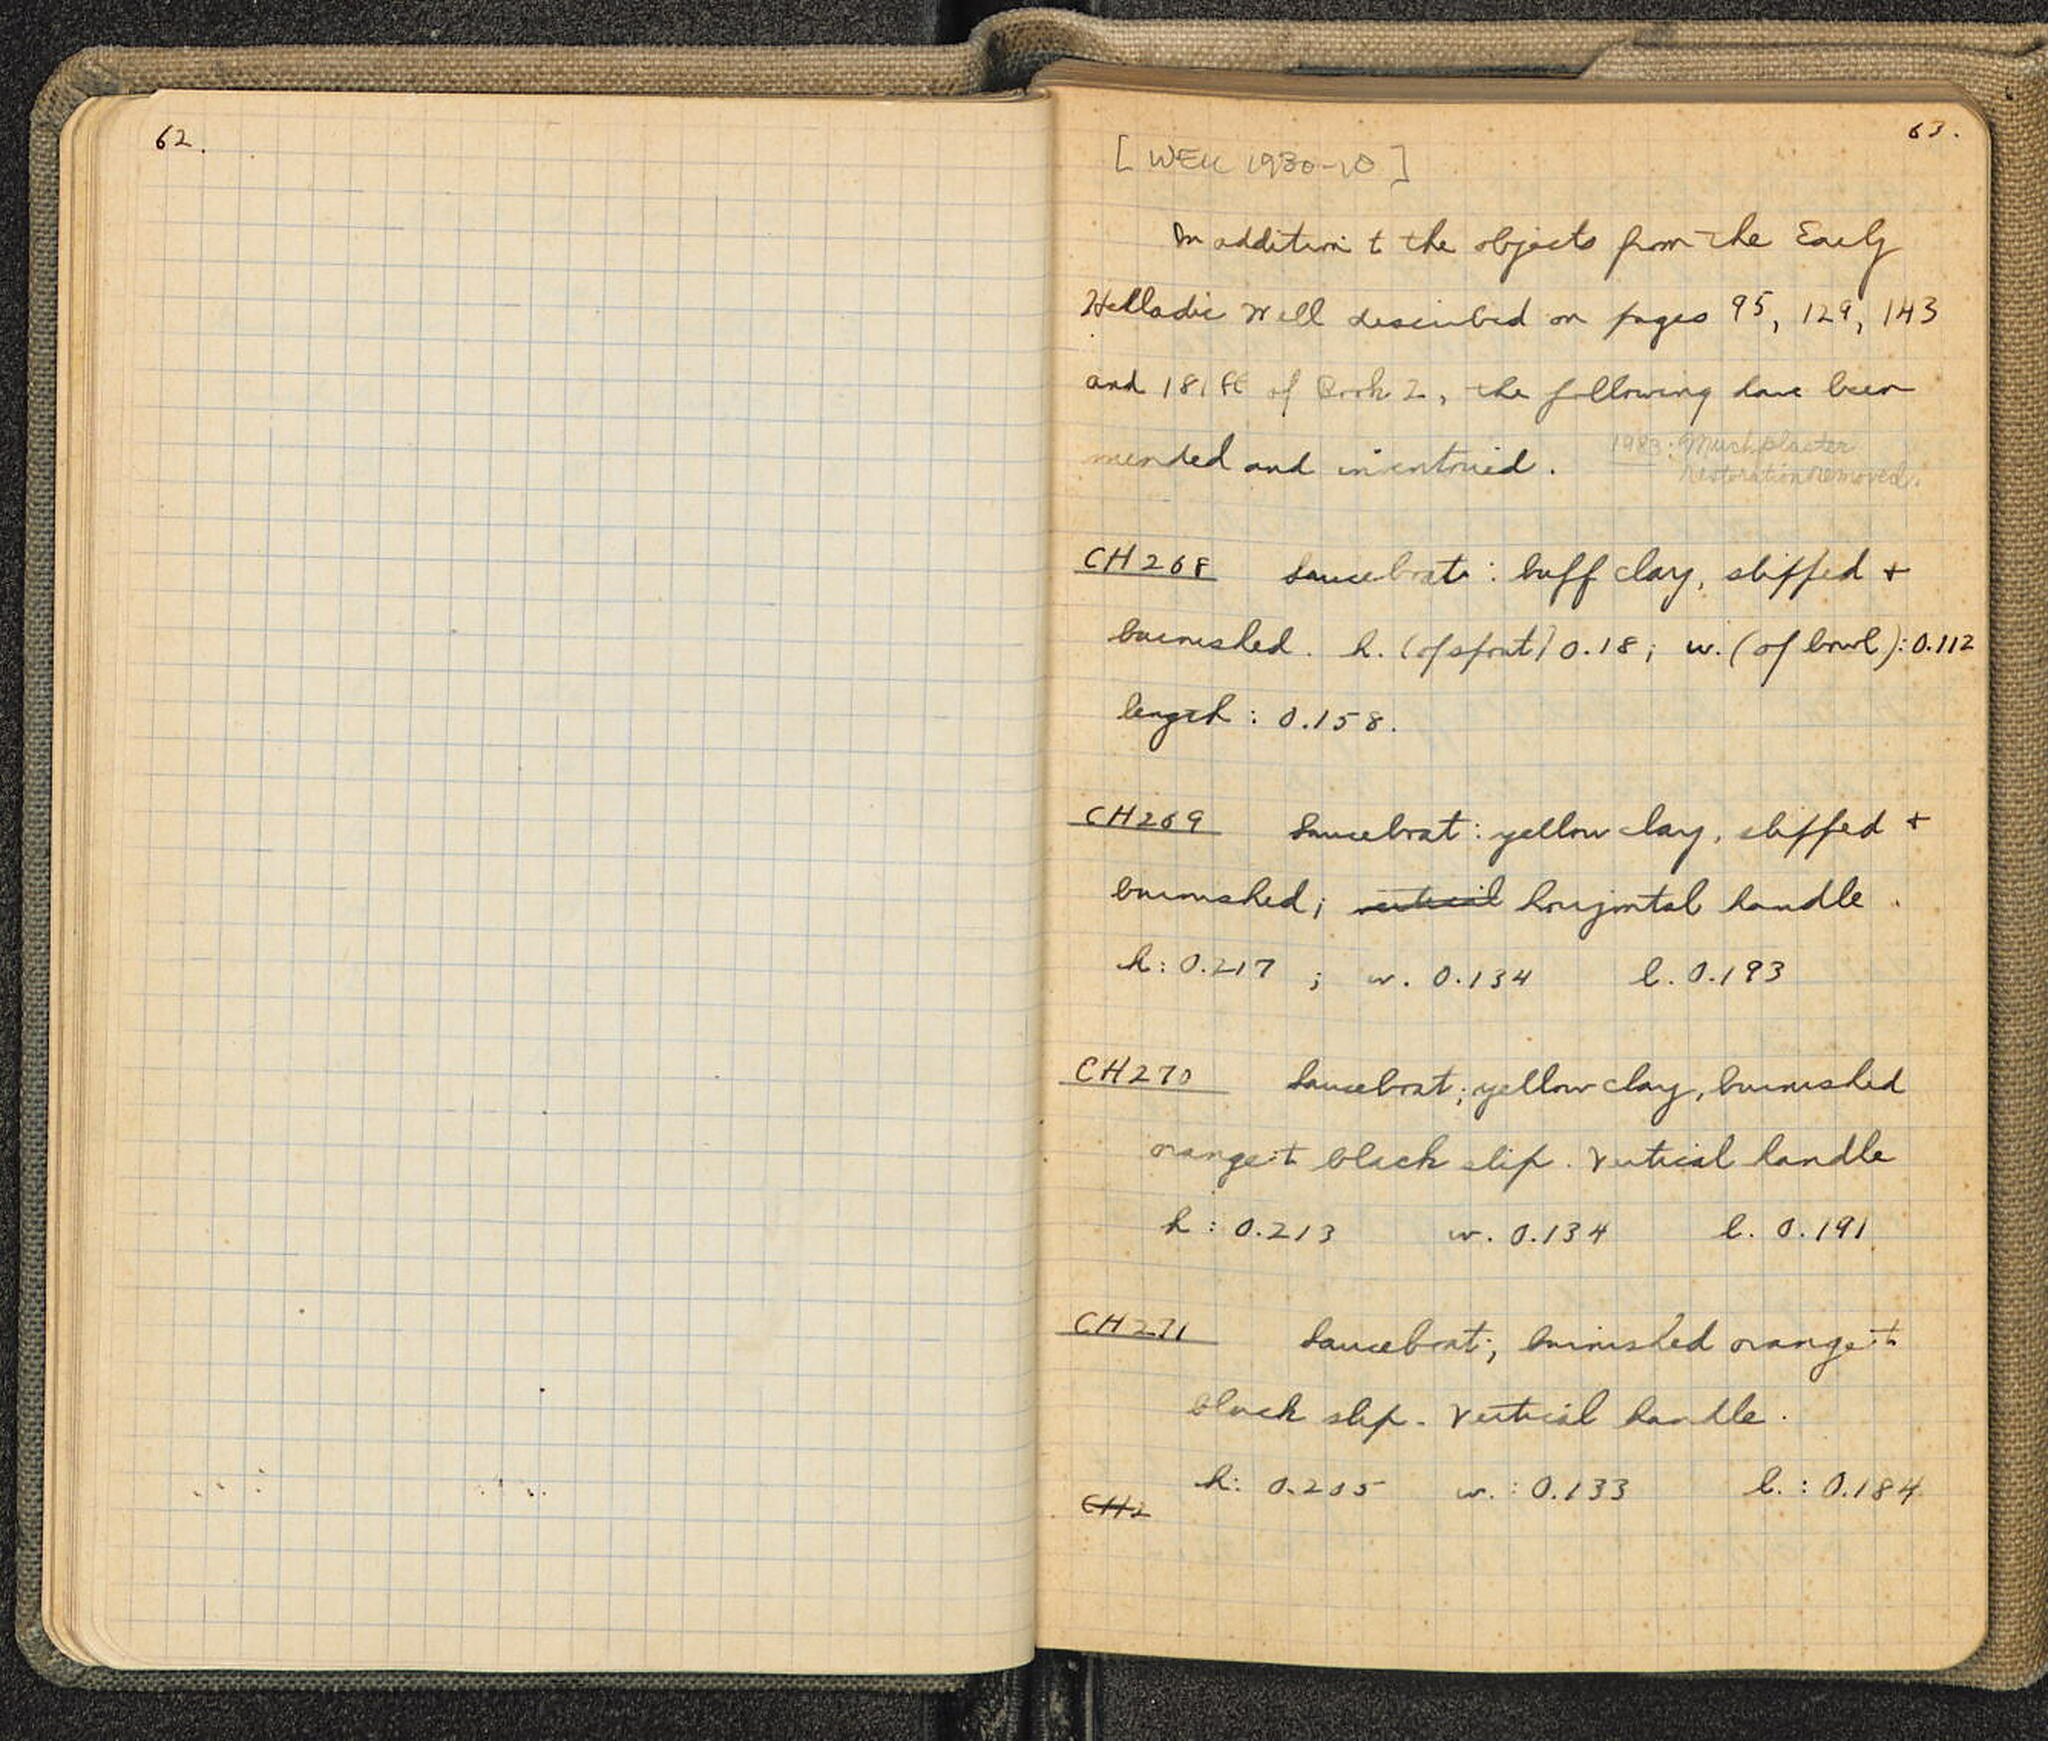 62.
63.
[WELL 1930-10]
In addition to the objects from the Early
Helladic Well described on pages 95, 129, 143
and 181 ff of Book 2, the following have been
mended and inventoried.
1983: Much plaster
restoration removed.
CH268 Sauceboat: buff clay, slipped +
burnished. h. (of spout) 0.18; w. (of bowl): 0.112
length: 0.158.
CH269 Sauceboat: yellow clay, slipped +
burnished; vertical horizontal handle.
h: 0.217; w. 0.134 l. 0.193
CH270 Sauceboat; yellow clay, burnished
orange to black slip. Vertical handle
h: 0.213 w. 0.134 l. 0.191
CH271 Sauceboat; burnished orange to
black slip. Vertical handle.
h: 0.205 w.: 0.133 l.: 0.184
CH2